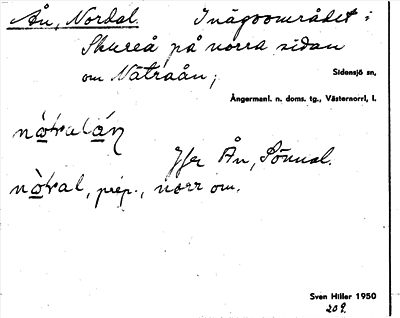 Ån, Nordal. Inägoområdet i
Skureå på norra sidan
om Nätraån;
Sidensjö sn,
Ångermanl. n. doms. tg., Västernorrl. l.
nọ̀ṛalán
Jfr Ån, Sönnal.
nọ̀ṛal, prep., norr om.
Sven Hiller 1950
209.